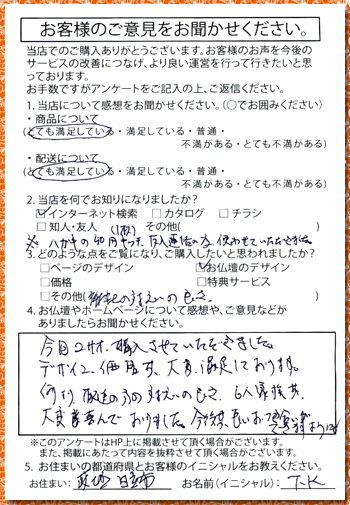 お客様のご意見をお聞かせください。
当店でのご購入ありがとうございます。お客様のお声を今後の
サービスの改善につなげ、より良い運営を行って行きたいと思
っております。
お手数ですがアンケートをご記入の上、ご返信ください。
1. 当店について感想をお聞かせください。(○でお囲みください)
・商品について
(とても満足している・満足している・普通・
不満がある・とても不満がある)
・配送について
(とても満足している・満足している・普通・
不満がある・とても不満がある)
2. 当店を何でお知りになりましたか?
☑インターネット検索 □カタログ □チラシ
□知人・友人 その他( )
3. どのような点をご覧になり、ご購入したいと思われましたか?
□ページのデザイン ☑お仏壇のデザイン
□価格 □特典サービス
□その他( の良さ。 )
4. お仏壇やホームページについて感想や、ご意見などが
ありましたらお聞かせください。
今回 購入させていただきました。
デザイン、価格共、大変満足しております。
何より、配送の方の の良さ、 家族共
大変喜んでおりました。今後共、良いお
※このアンケートはHP上に掲載させて頂く場合がございます。
また、掲載にあたって内容を抜粋させて頂く場合がございます。
5. お住まいの都道府県とお客様のイニシャルをお教えください。
お住まい: お名前(イニシャル): T.K